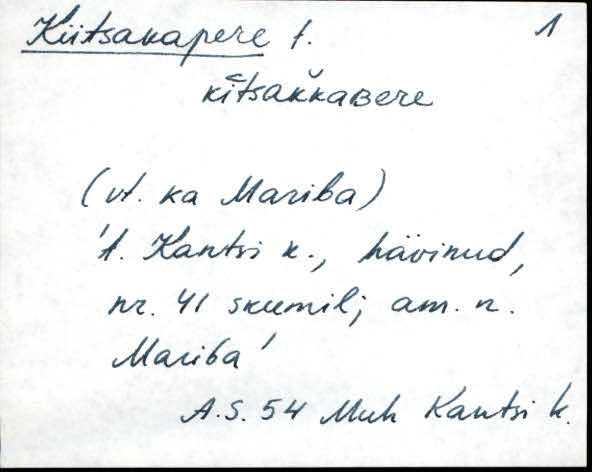 Kiitsakapere t. 1
kītsak̆kaʙere
(vt. ka Mariba)
't. Kantsi k., hävinud,
nr. 41 skeemil; am. n.
Mariba'
A.S. 54 Muh Kantsi k.